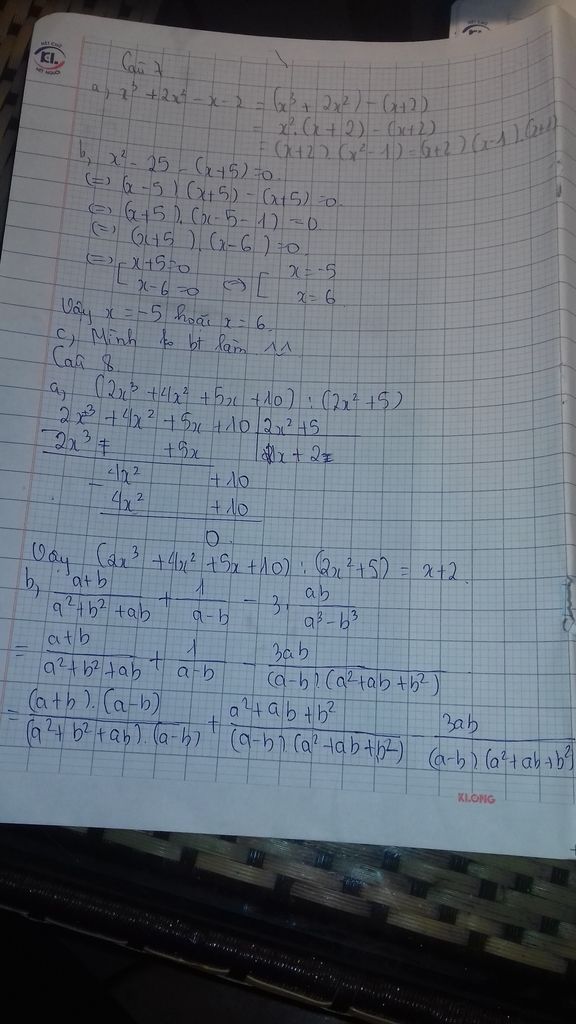 NÉT CHỮ
KL.
NẾT NGƯỜI
Câu 7
a, x³ + 2x² - x - 2 = (x³ + 2x²) - (x+2)
= x².(x+2) - (x+2)
= (x+2).(x²-1) = (x+2)(x-1).(x+1)
b, x² - 25 - (x+5) = 0
(=) (x-5)(x+5) - (x+5) = 0
(=) (x+5).(x-5-1) = 0
(=) (x+5).(x-6) = 0
(=) [ x+5=0 (=) [ x=-5
x-6=0 x=6
Vậy x=-5 hoặc x=6
c, Mình ko bt làm ^^
Câu 8
a, (2x³ + 4x² + 5x + 10) : (2x² + 5)
2x³ + 4x² + 5x + 10 | 2x² + 5
2x³ + 5x | x + 2
- 4x² + 10
4x² + 10
0
Vậy (2x³ + 4x² + 5x + 10) : (2x² + 5) = x+2
b, (a+b)/(a²+b²+ab) + 1/(a-b) - 3.ab/(a³-b³)
= (a+b)/(a²+b²+ab) + 1/(a-b) - 3ab/((a-b).(a²+ab+b²))
= (a+b).(a-b)/((a²+b²+ab).(a-b)) + (a²+ab+b²)/((a-b)(a²+ab+b²)) - 3ab/((a-b)(a²+ab+b²))
KLONG